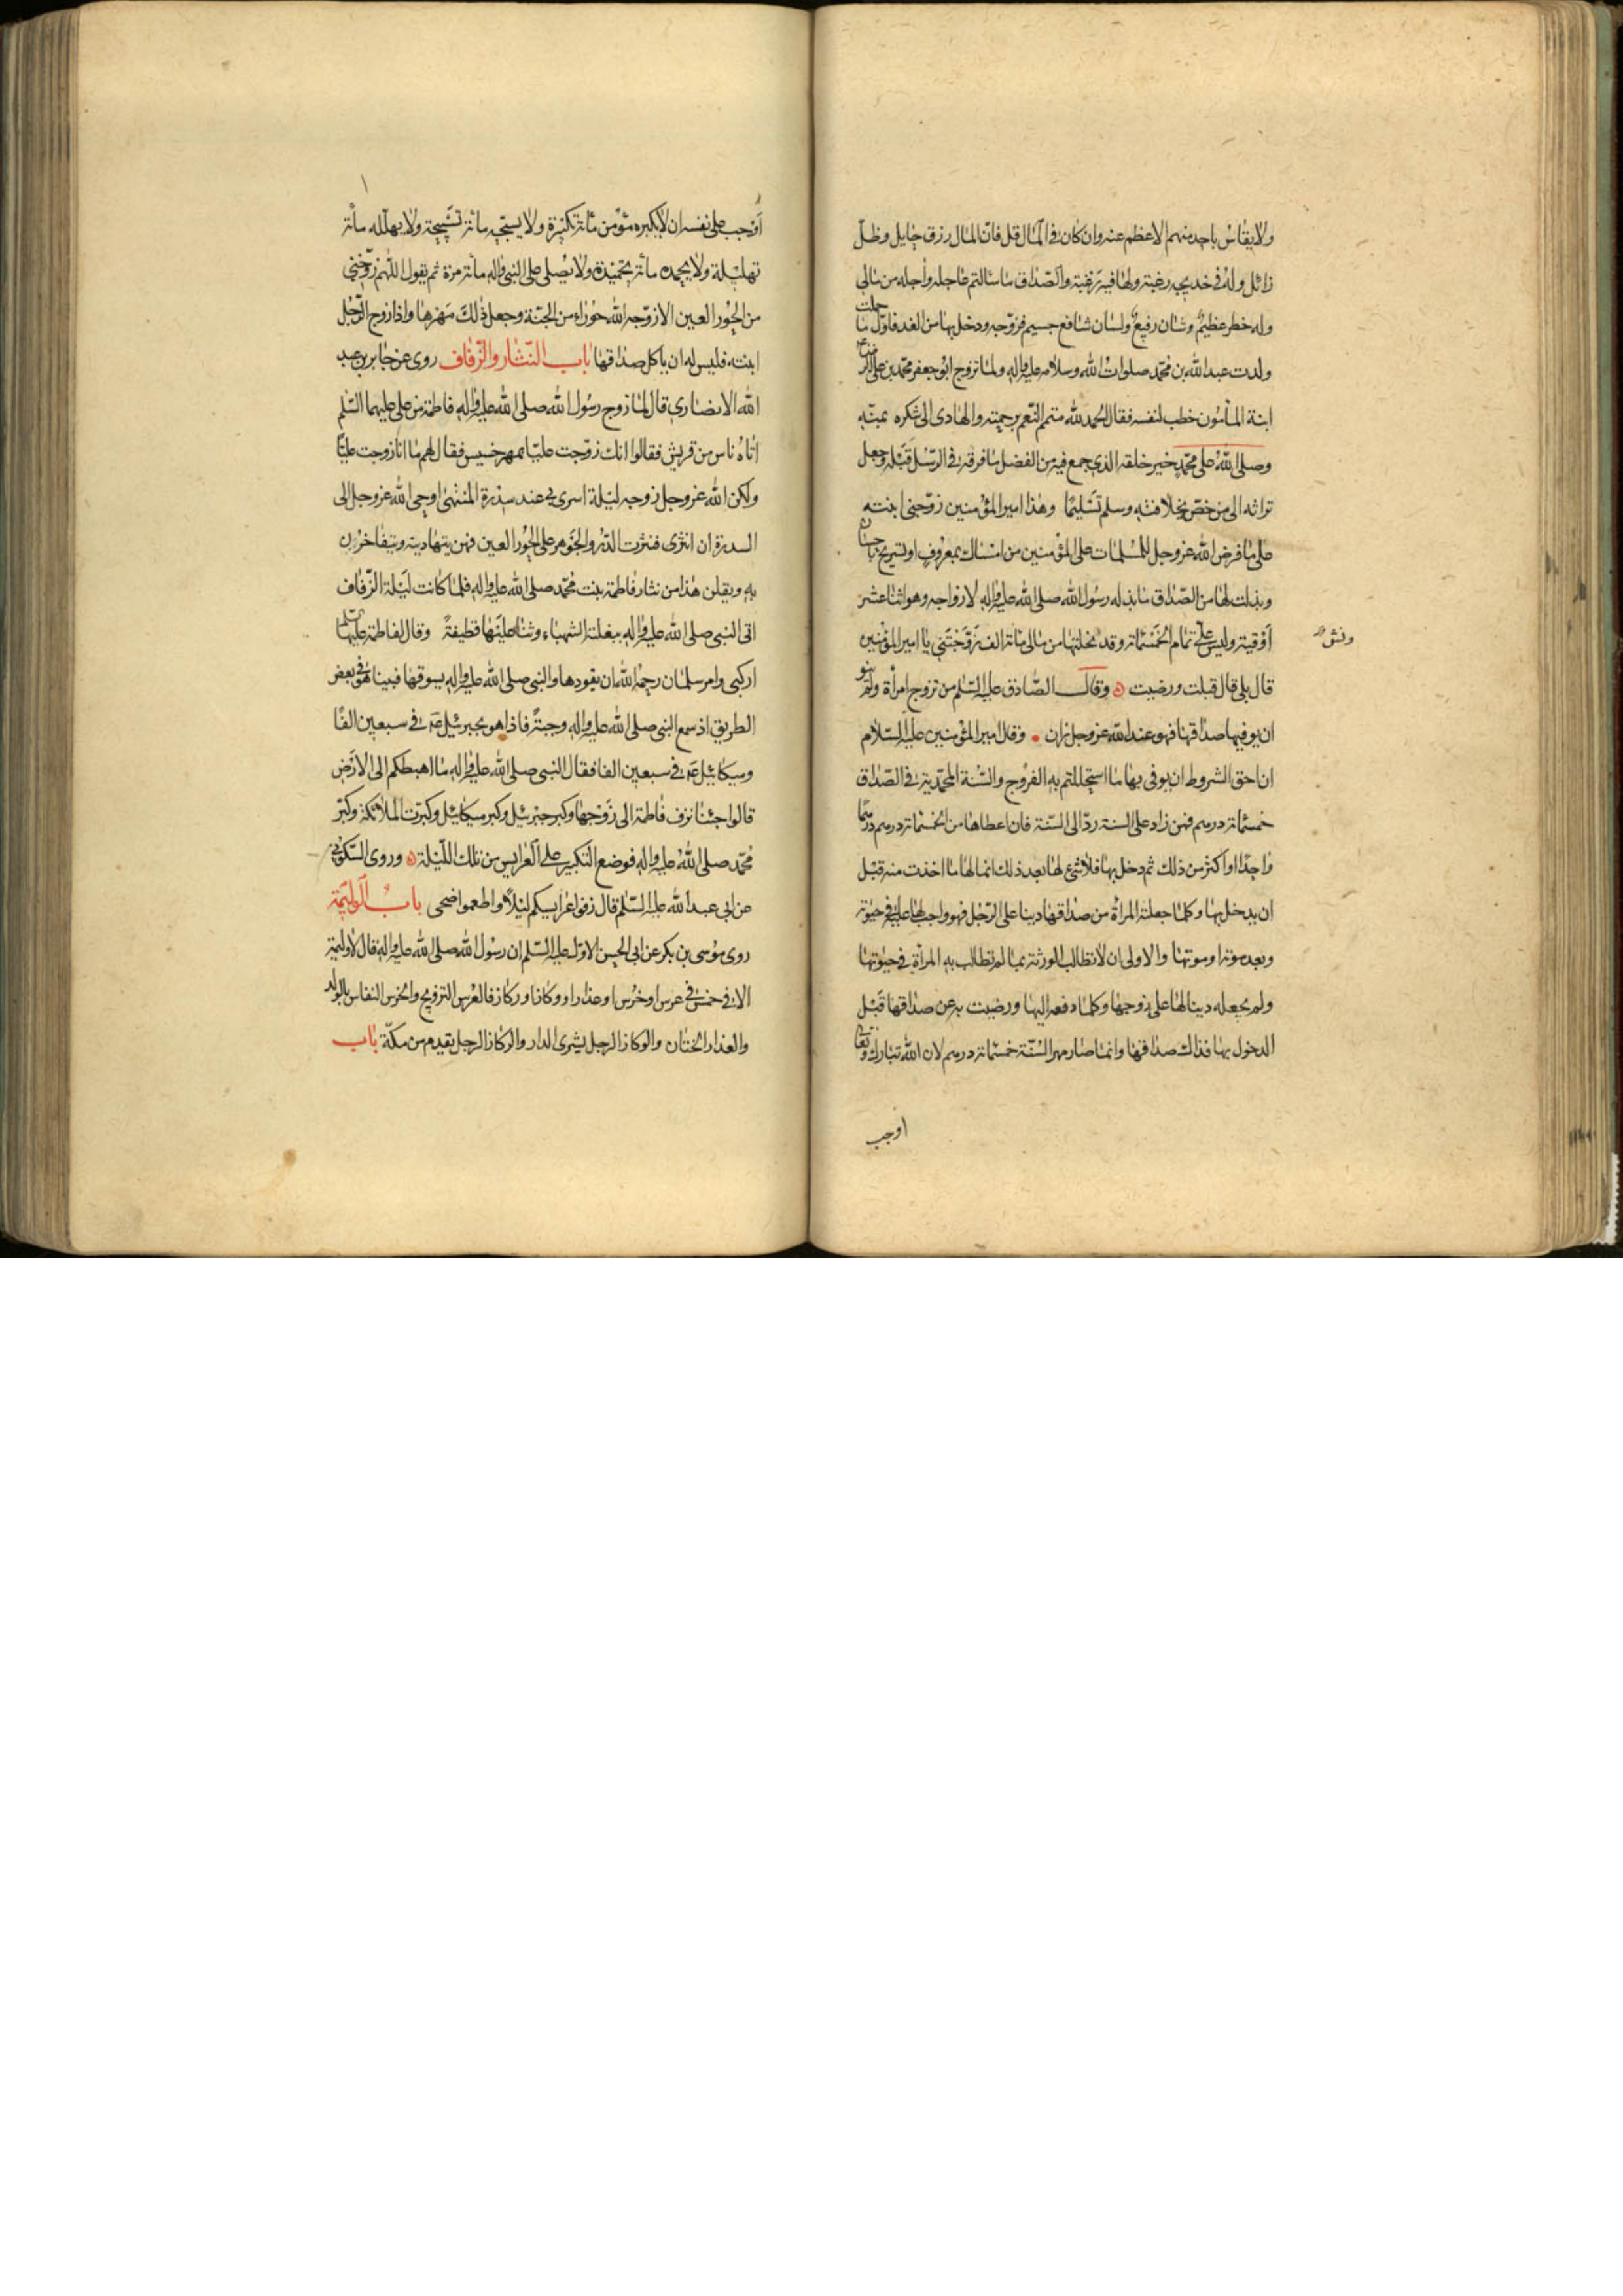 ولا يقاس باحد منهم الا عظم عنه وان كان في المال قل فان المال رزق حايل وظل
زائل وله في خديجه رغبة ولها فيه رغبة والصداق ما سالتم عاجله واجله من مالي
وله خطر عظيم وشان رفيع ولسان شافع جسيم فزوجه ودخل بها من الغد فاول ما حملت
ولدت عبد الله بن محمد صلوات الله وسلامه عليه واله ولما تزوج ابو جعفر محمد بن علي الرضا ع
ابنة المأمون خطب لنفسه فقال الحمد لله متمم النعم برحمته والهادي الى شكره بمنه
وصلى الله على محمد خير خلقه الذي جمع فيه من الفضل ما فرقه في الرسل قبله وجعل
تراثه الى من خصّ بخلافته وسلم تسليما وهذا امير المؤمنين زوجني ابنته
على ما فرض الله عز وجل للمسلمات على المؤمنين من امساك بمعروف او تسريح باحسان
وبذلت لها من الصداق ما بذله رسول الله صلى الله عليه واله لازواجه وهو اثنا عشر
أوقية وليس علي تمام الخمسمائة وقد نحلتها من مالي مائة الف زوجتني يا امير المؤمنين
ونش
قال بلى قال قبلت ورضيت وقال الصادق عليه السلم من تزوج امرأة ولم ينو
ان يوفيها صداقها فهو عند الله عز وجل زان وقال امير المؤمنين عليه السلام
ان احق الشروط ان يوفى بها ما استحللتم به الفروج والسنة المحمدية في الصداق
خمسمائة درهم فمن زاد على السنة ردّ الى السنة فان اعطاها من الخمسمائة درهم درهما
واحدا او اكثر من ذلك ثم دخل بها فلا شئ لها بعد ذلك انما لها ما اخذت منه قبل
ان يدخل بها وكلما جعلته المرأة من صداقها دينا على الرجل فهو واجب لها عليه في حيوته
وبعد موته او موتها والاولى ان لا تطالب الورثة بما لم تطالب به المرأة في حيوتها
ولم يجعله دينا لها على زوجها وكلما دفعه اليها ورضيت به عن صداقها قبل
الدخول بها فذاك صداقها وانما صار مهر السنة خمسمائة درهم لان الله تبارك وتعالى
اوجب
أوجب على نفسه ان لا يكبره مؤمن مائة تكبيرة ولا يسبحه مائة تسبيحة ولا يهلله مأة
تهليلة ولا يحمده مأة تحميدة ولا يصلى على النبي واله مأة مرة ثم يقول اللهم زوجني
من الحور العين الا زوجه الله حوراء من الجنة وجعل ذلك مهرها واذا زوج الرجل
ابنته فليس له ان يأكل صداقها باب النثار والزفاف روى عن جابر بن عبد
الله الانصاري قال لما زوج رسول الله صلى الله عليه واله فاطمة من علي عليهما السلم
اتاه ناس من قريش فقالوا انك زوجت عليا بمهر خسيس فقال لهم ما انا زوجت عليّا
ولكن الله عز وجل زوجه ليلة اسرى بي عند سدرة المنتهى اوحى الله عز وجل الى
السدرة ان انثرى فنثرت الدر والجوهر على الحور العين فهن يتهادينه ويتفاخرن
به ويقلن هذا من نثار فاطمة بنت محمد صلى الله عليه واله فلما كانت ليلة الزفاف
اتى النبي صلى الله عليه واله ببغلته الشهباء وثنا عليها قطيفة وقال لفاطمة عليها السلم
اركبى وامر سلمان رحمه الله ان يقودها والنبي صلى الله عليه واله يسوقها فبينا هو في بعض
الطريق اذ سمع النبي صلى الله عليه واله وجبةً فاذا هو بجبرئيل ع في سبعين الفا
وميكائيل ع في سبعين الفا فقال النبي صلى الله عليه واله ما اهبطكم الى الارض
قالوا جئنا نزف فاطمة الى زوجها وكبر جبرئيل وكبر ميكائيل وكبرت الملائكة وكبّر
محمد صلى الله عليه واله فوضع التكبير على العرايس من تلك الليلة وروى السكوني
عن ابي عبد الله عليه السلم قال زفوا عرايسكم ليلا واطعموا ضحى باب الوليمة
روى موسى بن بكر عن ابي الحسن الاول عليه السلم ان رسول الله صلى الله عليه واله قال لا وليمة
الا في خمس في عرس او خرس او عذار او وكار او ركاز فالعرس التزويج والخرس النفاس بالولد
والعذار الختان والوكاز الرجل يشرى الدار والركاز الرجل يقدم من مكة باب